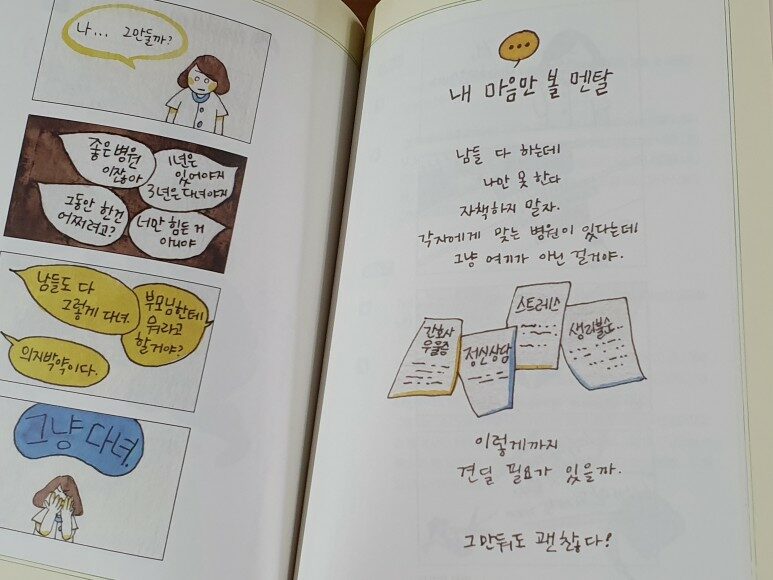 나... 그만둘까?
좋은 병원
이잖아
1년은
있어야지
3년은 다녀야지
그동안 한건
어쩌려고?
너만 힘든 거
아니야
남들도 다
그렇게 다녀.
부모님한테
뭐라고
할거야?
의지박약이다.
그냥 다녀.
...
내 마음만 볼 멘탈
남들 다 하는데
나만 못 한다
자책하지 말자.
각자에게 맞는 병원이 있다는데
그냥 여기가 아닌 걸거야.
간호사
우울증
정신상담
스트레스
생리불순..
이렇게까지
견딜 필요가 있을까.
그만둬도 괜찮다!